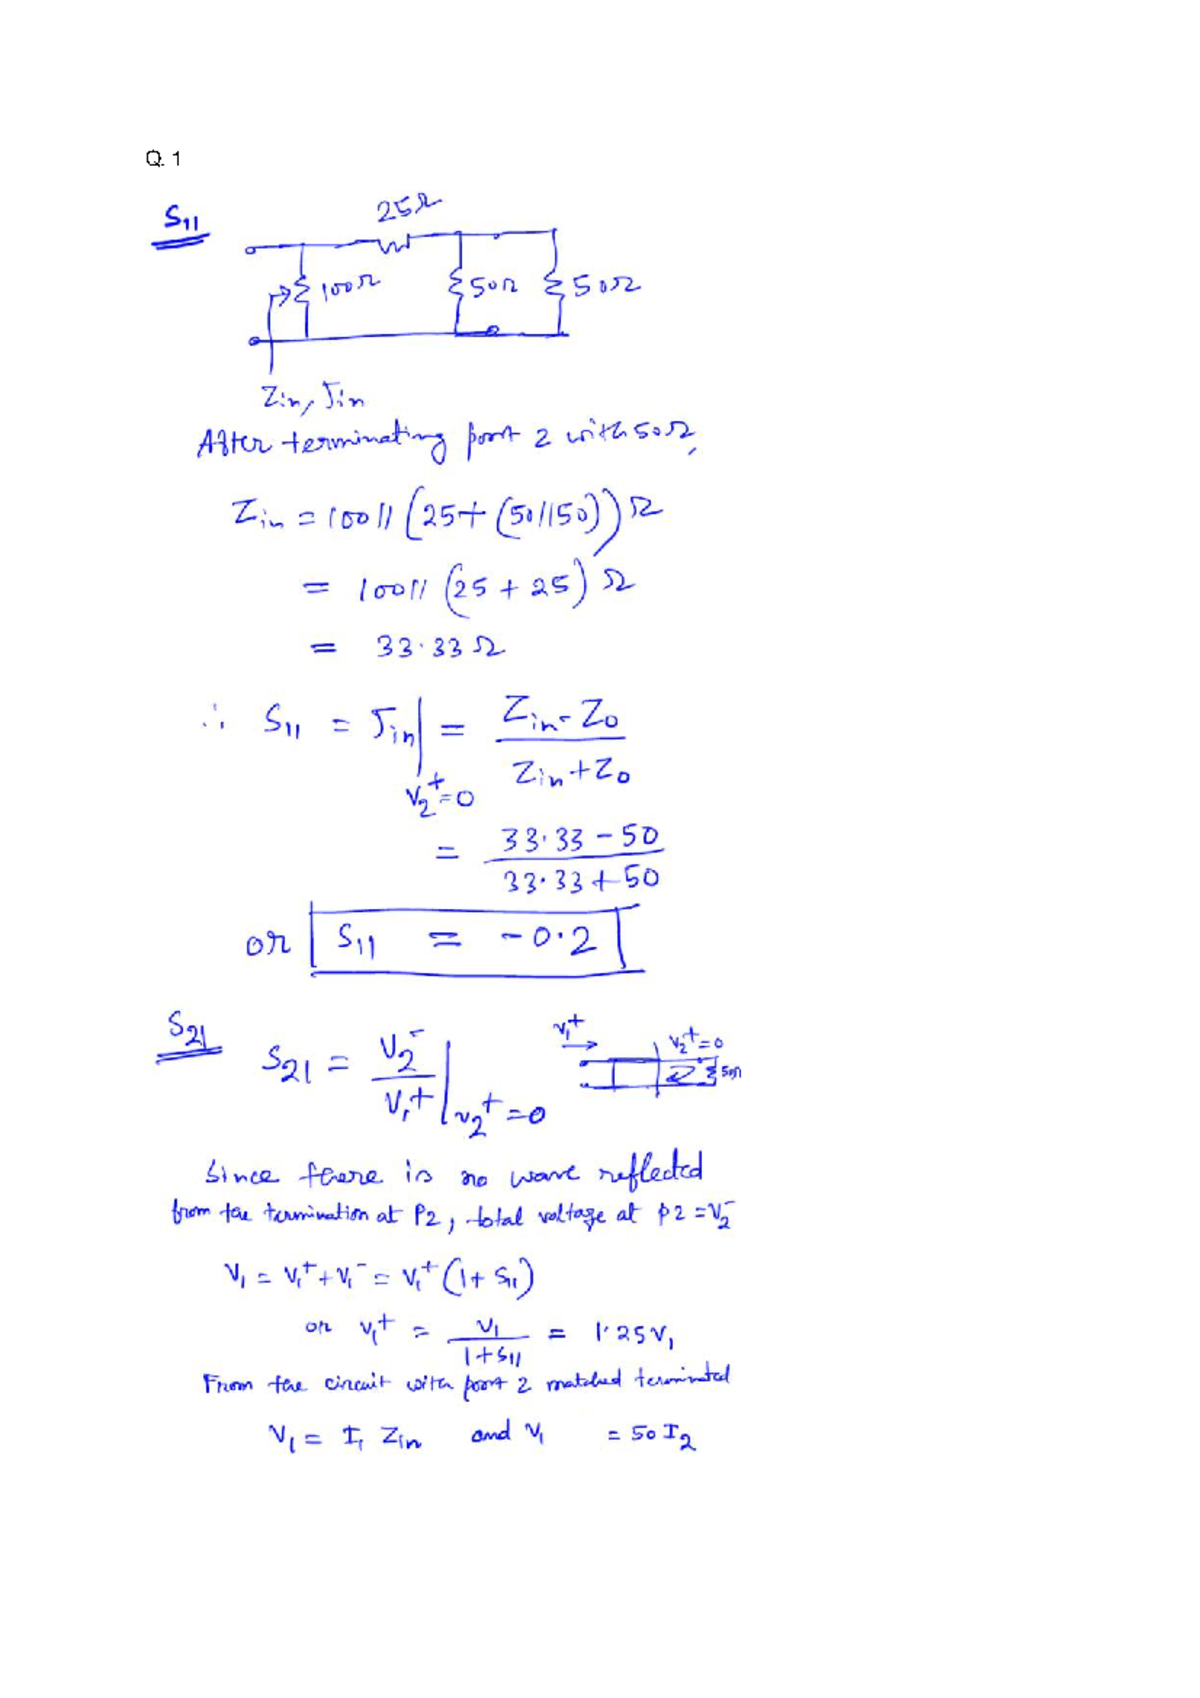 Q. 1
S11
25Ω
100Ω 50Ω 50Ω
Zin, Γin
After terminating port 2 with 50Ω,
Zin = 100 || (25 + (50||50)) Ω
= 100 || (25 + 25) Ω
= 33.33 Ω
∴ S11 = Γin | V2+ = 0 = (Zin - Z0) / (Zin + Z0)
= (33.33 - 50) / (33.33 + 50)
or S11 = -0.2
S21
S21 = V2- / V1+ | V2+ = 0
V1+ V2+ = 0
50Ω
Since there is no wave reflected
from the termination at P2, total voltage at P2 = V2-
V1 = V1+ + V1- = V1+ (1 + S11)
or V1+ = V1 / (1 + S11) = 1.25 V1
From the circuit with port 2 matched terminated
V1 = I1 Zin and V1 = 50 I2